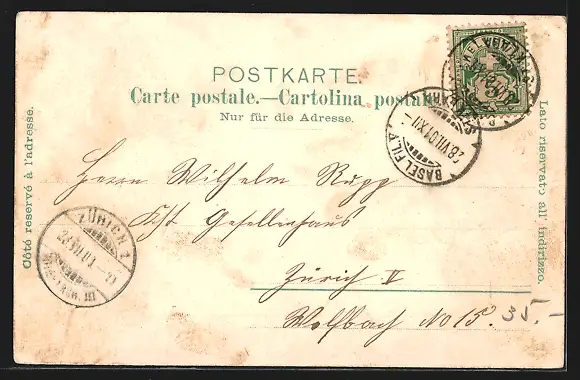 POSTKARTE.
Carte postale.—Cartolina postale
Nur für die Adresse.
Côté reservé à l'adresse.
Lato riservato all' indirizzo.
BASEL FIL.
28.VII.01.XII-
ZÜRICH 1
Herrn Wilhelm Rupp
Gesellenhaus
Zürich V
Wolfbach No 15.
35.-